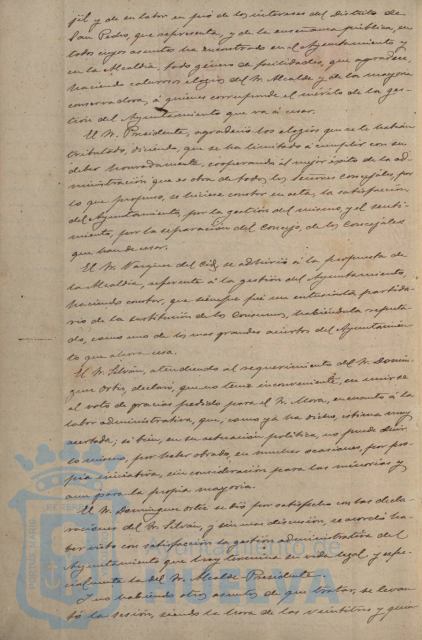 jil y de su labor en pró de los intereses del distrito de
San Pedro, que representa, y de la enseñanza pública, en
todos cuyos asuntos ha encontrado en el Ayuntamiento y
en la Alcaldía, todo género de facilidades, que agradece,
haciendo calurosos elogios del Sr. Alcalde y de la mayoría
conservadora, á quienes corresponde el mérito de la ges-
tión del Ayuntamiento que va á cesar.
El Sr. Presidente, agradeció los elogios que se le habían
tributado, diciendo, que se ha limitado á cumplir con su
deber honradamente, cooperando al mejor éxito de la ad-
ministración que es obra de todos los Señores Concejales, por
lo que propuso, se hiciese constar en acta, la satisfacción
del Ayuntamiento, por la gestión del mismo, y el senti-
miento, por la separación del Concejo, de los Concejales
que han de cesar.
El Sr. Vázquez del Cid, se adhirió á la propuesta de
la Alcaldía, referente á la gestión del Ayuntamiento,
haciendo constar, que siempre fué un entusiasta partida-
rio de la sustitución de los Consumos, habiéndola reputa-
do, como uno de los mas grandes aciertos del Ayuntamien-
to que ahora cesa.
El Sr. Silván, atendiendo al requerimiento del Sr. Domín-
guez Ortiz, declaró, que no tenia inconveniente, en unirse
al voto de gracias pedido para el Sr. Mora, en cuanto á la
labor administrativa, que, como ya ha dicho, estima muy
acertada; si bien, en su actuación política, no puede decir
lo mismo, por haber obrado, en muchas ocasiones, por pro-
pia iniciativa, sin consideración para las minorias y
aun para la propia mayoria.
El Sr. Dominguez Ortiz se dió por satisfecho con las decla-
raciones del Sr. Silván, y sin mas discusión, se acordó ha-
ber visto con satisfacción la gestión administrativa del
Ayuntamiento que hoy termina su vida legal y espe-
cialmente la del Sr. Alcalde-Presidente.
Y no habiendo otros asuntos de que tratar, se levan-
tó la sesión, siendo la hora de las veintitres y quin
Ayuntamiento de